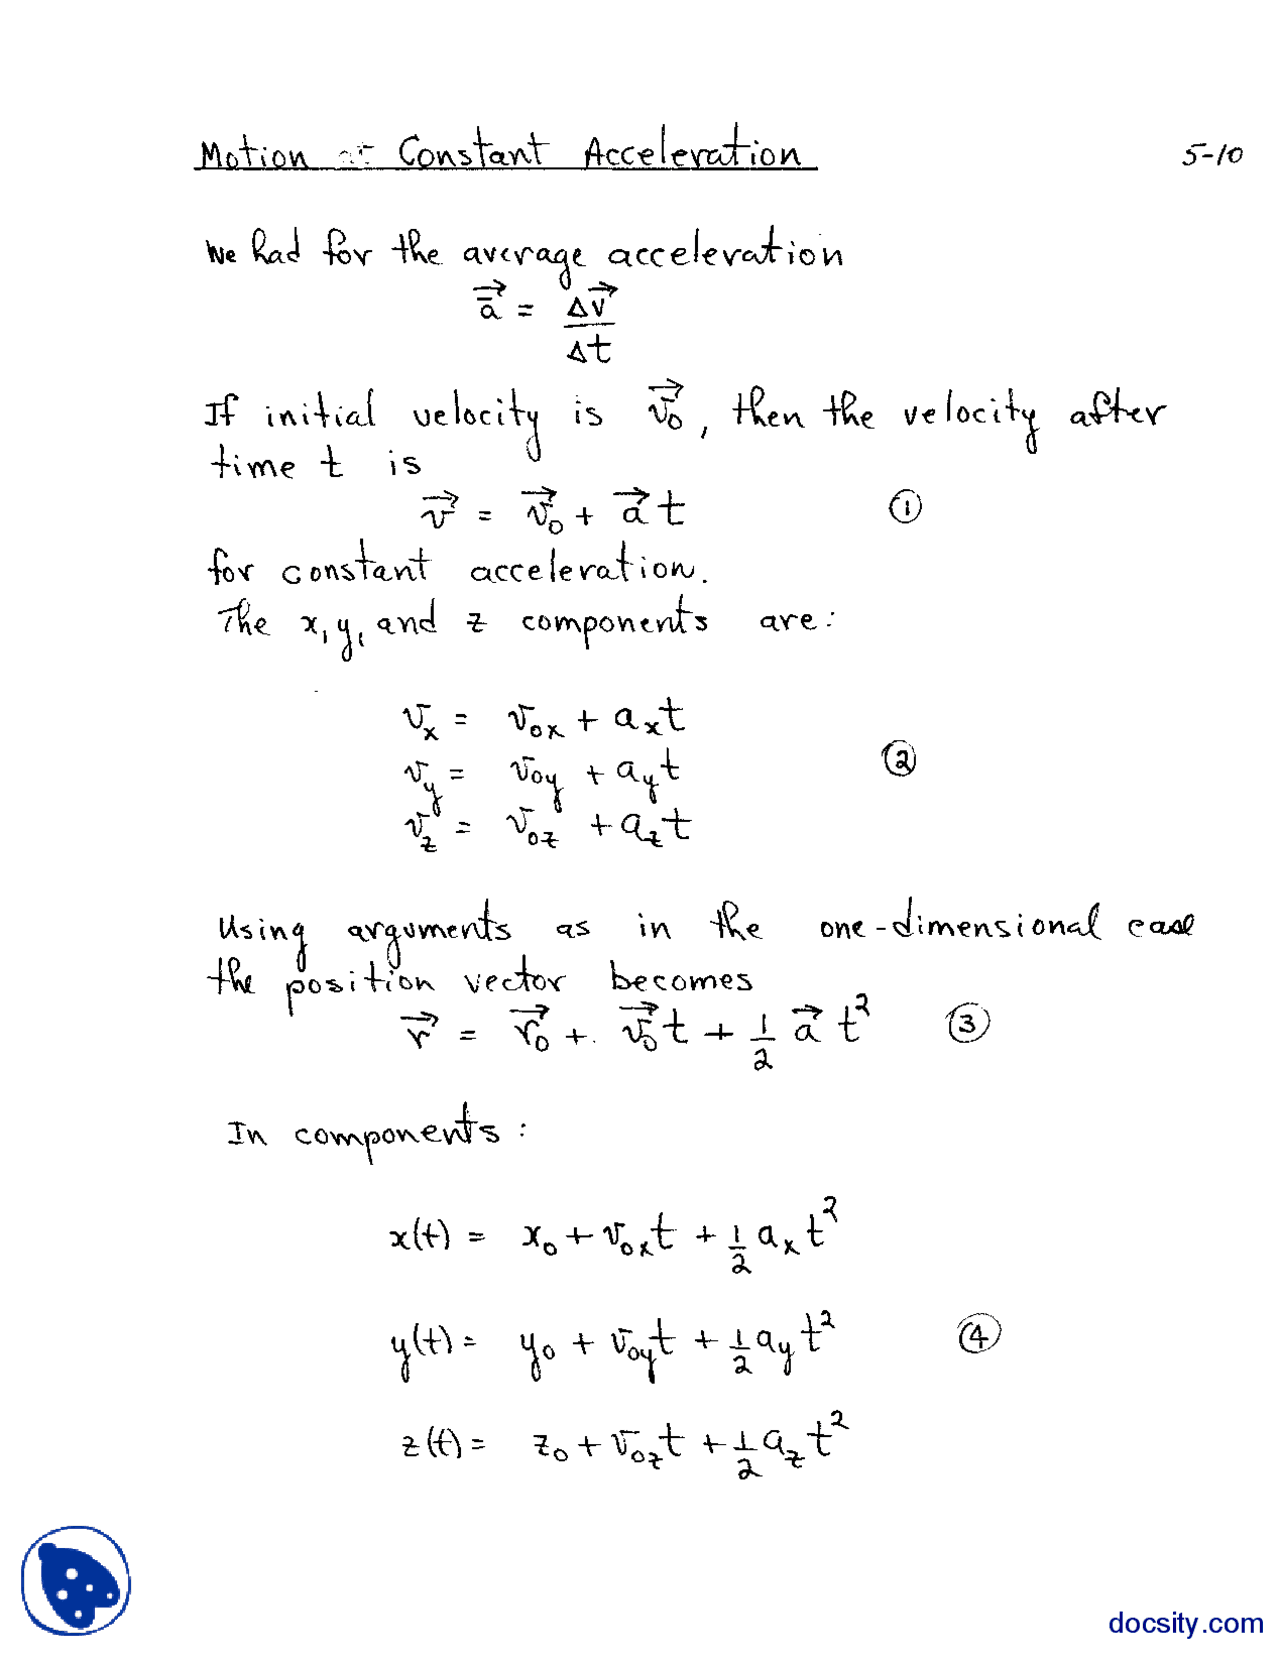 Motion at Constant Acceleration
5-10
We had for the average acceleration
\vec{\bar{a}} = \frac{Δ\vec{v}}{Δt}
If initial velocity is \vec{v}_0, then the velocity after
time t is
\vec{v} = \vec{v}_0 + \vec{a} t ①
for constant acceleration.
The x, y, and z components are:
v_x = v_{0x} + a_x t
v_y = v_{0y} + a_y t ②
v_z = v_{0z} + a_z t
Using arguments as in the one-dimensional case
the position vector becomes
\vec{r} = \vec{r}_0 + \vec{v}_0 t + \frac{1}{2} \vec{a} t^2 ③
In components:
x(t) = x_0 + v_{0x} t + \frac{1}{2} a_x t^2
y(t) = y_0 + v_{0y} t + \frac{1}{2} a_y t^2 ④
z(t) = z_0 + v_{0z} t + \frac{1}{2} a_z t^2
docsity.com